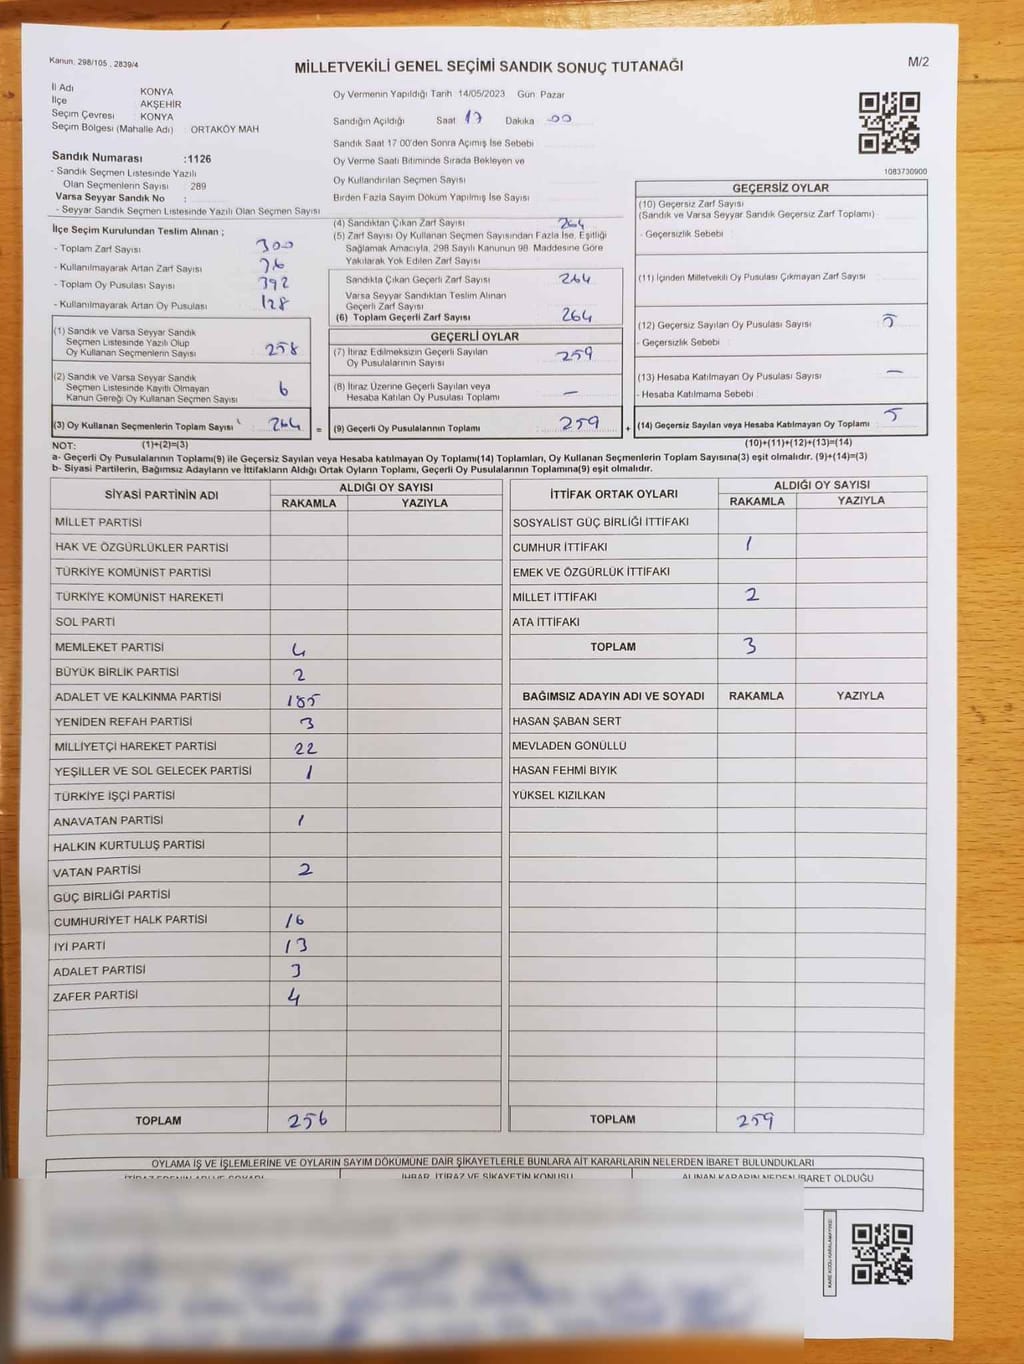 Kanun, 298/105 , 2839/4
MİLLETVEKİLİ GENEL SEÇİMİ SANDIK SONUÇ TUTANAĞI
M/2
İl Adı KONYA
İlçe AKŞEHİR
Seçim Çevresi KONYA
Seçim Bölgesi (Mahalle Adı) : ORTAKÖY MAH
Sandık Numarası :1126
- Sandık Seçmen Listesinde Yazılı
Olan Seçmenlerin Sayısı : 289
Varsa Seyyar Sandık No :
- Seyyar Sandık Seçmen Listesinde Yazılı Olan Seçmen Sayısı
Oy Vermenin Yapıldığı Tarih 14/05/2023 Gün Pazar
Sandığın Açıldığı Saat 17 Dakika 00
Sandık Saat 17 00'den Sonra Açımış İse Sebebi
Oy Verme Saati Bitiminde Sırada Bekleyen ve
Oy Kullandırılan Seçmen Sayısı
Birden Fazla Sayım Döküm Yapılmış İse Sayısı
1083730900
İlçe Seçim Kurulundan Teslim Alınan ;
- Toplam Zarf Sayısı 300
- Kullanılmayarak Artan Zarf Sayısı 36
- Toplam Oy Pusulası Sayısı 392
- Kullanılmayarak Artan Oy Pusulası 128
(1) Sandık ve Varsa Seyyar Sandık
Seçmen Listesinde Yazılı Olup
Oy Kullanan Seçmenlerin Sayısı 258
(2) Sandık ve Varsa Seyyar Sandık
Seçmen Listesinde Kayıtlı Olmayan
Kanun Gereği Oy Kullanan Seçmen Sayısı 6
(3) Oy Kullanan Seçmenlerin Toplam Sayısı 264 =
(4) Sandıktan Çıkan Zarf Sayısı 264
(5) Zarf Sayısı Oy Kullanan Seçmen Sayısından Fazla İse, Eşitliği
Sağlamak Amacıyla, 298 Sayılı Kanunun 98 Maddesine Göre
Yakılarak Yok Edilen Zarf Sayısı
Sandıkta Çıkan Geçerli Zarf Sayısı 264
Varsa Seyyar Sandıktan Teslim Alınan
Geçerli Zarf Sayısı
(6) Toplam Geçerli Zarf Sayısı 264
GEÇERLİ OYLAR
(7) İtiraz Edilmeksizin Geçerli Sayılan
Oy Pusulalarının Sayısı 259
(8) İtiraz Üzerine Geçerli Sayılan veya
Hesaba Katılan Oy Pusulası Toplamı —
(9) Geçerli Oy Pusulalarının Toplamı 259 +
GEÇERSİZ OYLAR
(10) Geçersiz Zarf Sayısı
(Sandık ve Varsa Seyyar Sandık Geçersiz Zarf Toplamı)
- Geçersizlik Sebebi
(11) İçinden Milletvekili Oy Pusulası Çıkmayan Zarf Sayısı
(12) Geçersiz Sayılan Oy Pusulası Sayısı 5
- Geçersizlik Sebebi
(13) Hesaba Katılmayan Oy Pusulası Sayısı —
- Hesaba Katılmama Sebebi
(14) Geçersiz Sayılan veya Hesaba Katılmayan Oy Toplamı 5
NOT: (1)+(2)=(3) (10)+(11)+(12)+(13)=(14)
a- Geçerli Oy Pusulalarının Toplamı(9) ile Geçersiz Sayılan veya Hesaba katılmayan Oy Toplamı(14) Toplamları, Oy Kullanan Seçmenlerin Toplam Sayısına(3) eşit olmalıdır. (9)+(14)=(3)
b- Siyasi Partilerin, Bağımsız Adayların ve İttifakların Aldığı Ortak Oyların Toplamı, Geçerli Oy Pusulalarının Toplamına(9) eşit olmalıdır.
SİYASİ PARTİNİN ADI ALDIĞI OY SAYISI
RAKAMLA YAZIYLA
MİLLET PARTİSİ
HAK VE ÖZGÜRLÜKLER PARTİSİ
TÜRKİYE KOMÜNİST PARTİSİ
TÜRKİYE KOMÜNİST HAREKETİ
SOL PARTİ
MEMLEKET PARTİSİ 4
BÜYÜK BİRLİK PARTİSİ 2
ADALET VE KALKINMA PARTİSİ 185
YENİDEN REFAH PARTİSİ 3
MİLLİYETÇİ HAREKET PARTİSİ 22
YEŞİLLER VE SOL GELECEK PARTİSİ 1
TÜRKİYE İŞÇİ PARTİSİ
ANAVATAN PARTİSİ 1
HALKIN KURTULUŞ PARTİSİ
VATAN PARTİSİ 2
GÜÇ BİRLİĞİ PARTİSİ
CUMHURİYET HALK PARTİSİ 16
İYİ PARTİ 13
ADALET PARTİSİ 3
ZAFER PARTİSİ 4
TOPLAM 256
İTTİFAK ORTAK OYLARI ALDIĞI OY SAYISI
RAKAMLA YAZIYLA
SOSYALİST GÜÇ BİRLİĞİ İTTİFAKI
CUMHUR İTTİFAKI 1
EMEK VE ÖZGÜRLÜK İTTİFAKI
MİLLET İTTİFAKI 2
ATA İTTİFAKI
TOPLAM 3
BAĞIMSIZ ADAYIN ADI VE SOYADI RAKAMLA YAZIYLA
HASAN ŞABAN SERT
MEVLADEN GÖNÜLLÜ
HASAN FEHMİ BIYIK
YÜKSEL KIZILKAN
TOPLAM 259
OYLAMA İŞ VE İŞLEMLERİNE VE OYLARIN SAYIM DÖKÜMÜNE DAİR ŞİKAYETLERLE BUNLARA AİT KARARLARIN NELERDEN İBARET BULUNDUKLARI
İTİRAZ EDENİN ADI VE SOYADI İHBAR, İTİRAZ VE ŞİKAYETİN KONUSU ALINAN KARARIN NEDEN İBARET OLDUĞU